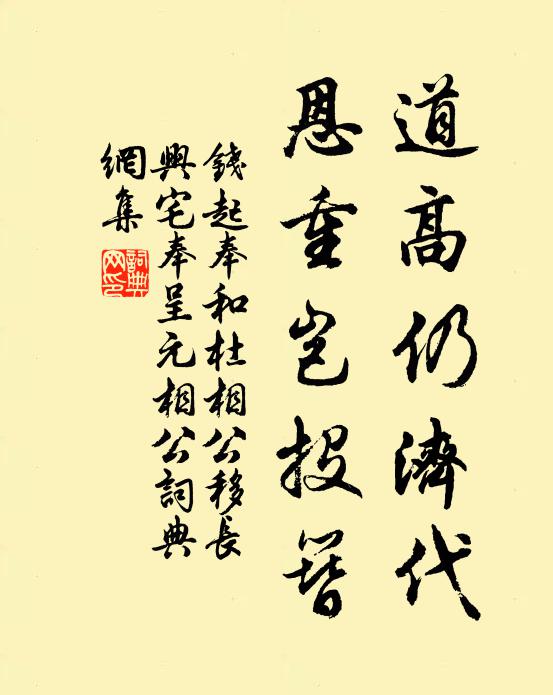 道高仍濟代
恩重岂投簪
錢起奉和杜相公移長
興宅奉呈元相公詞典
網集
詞典网印